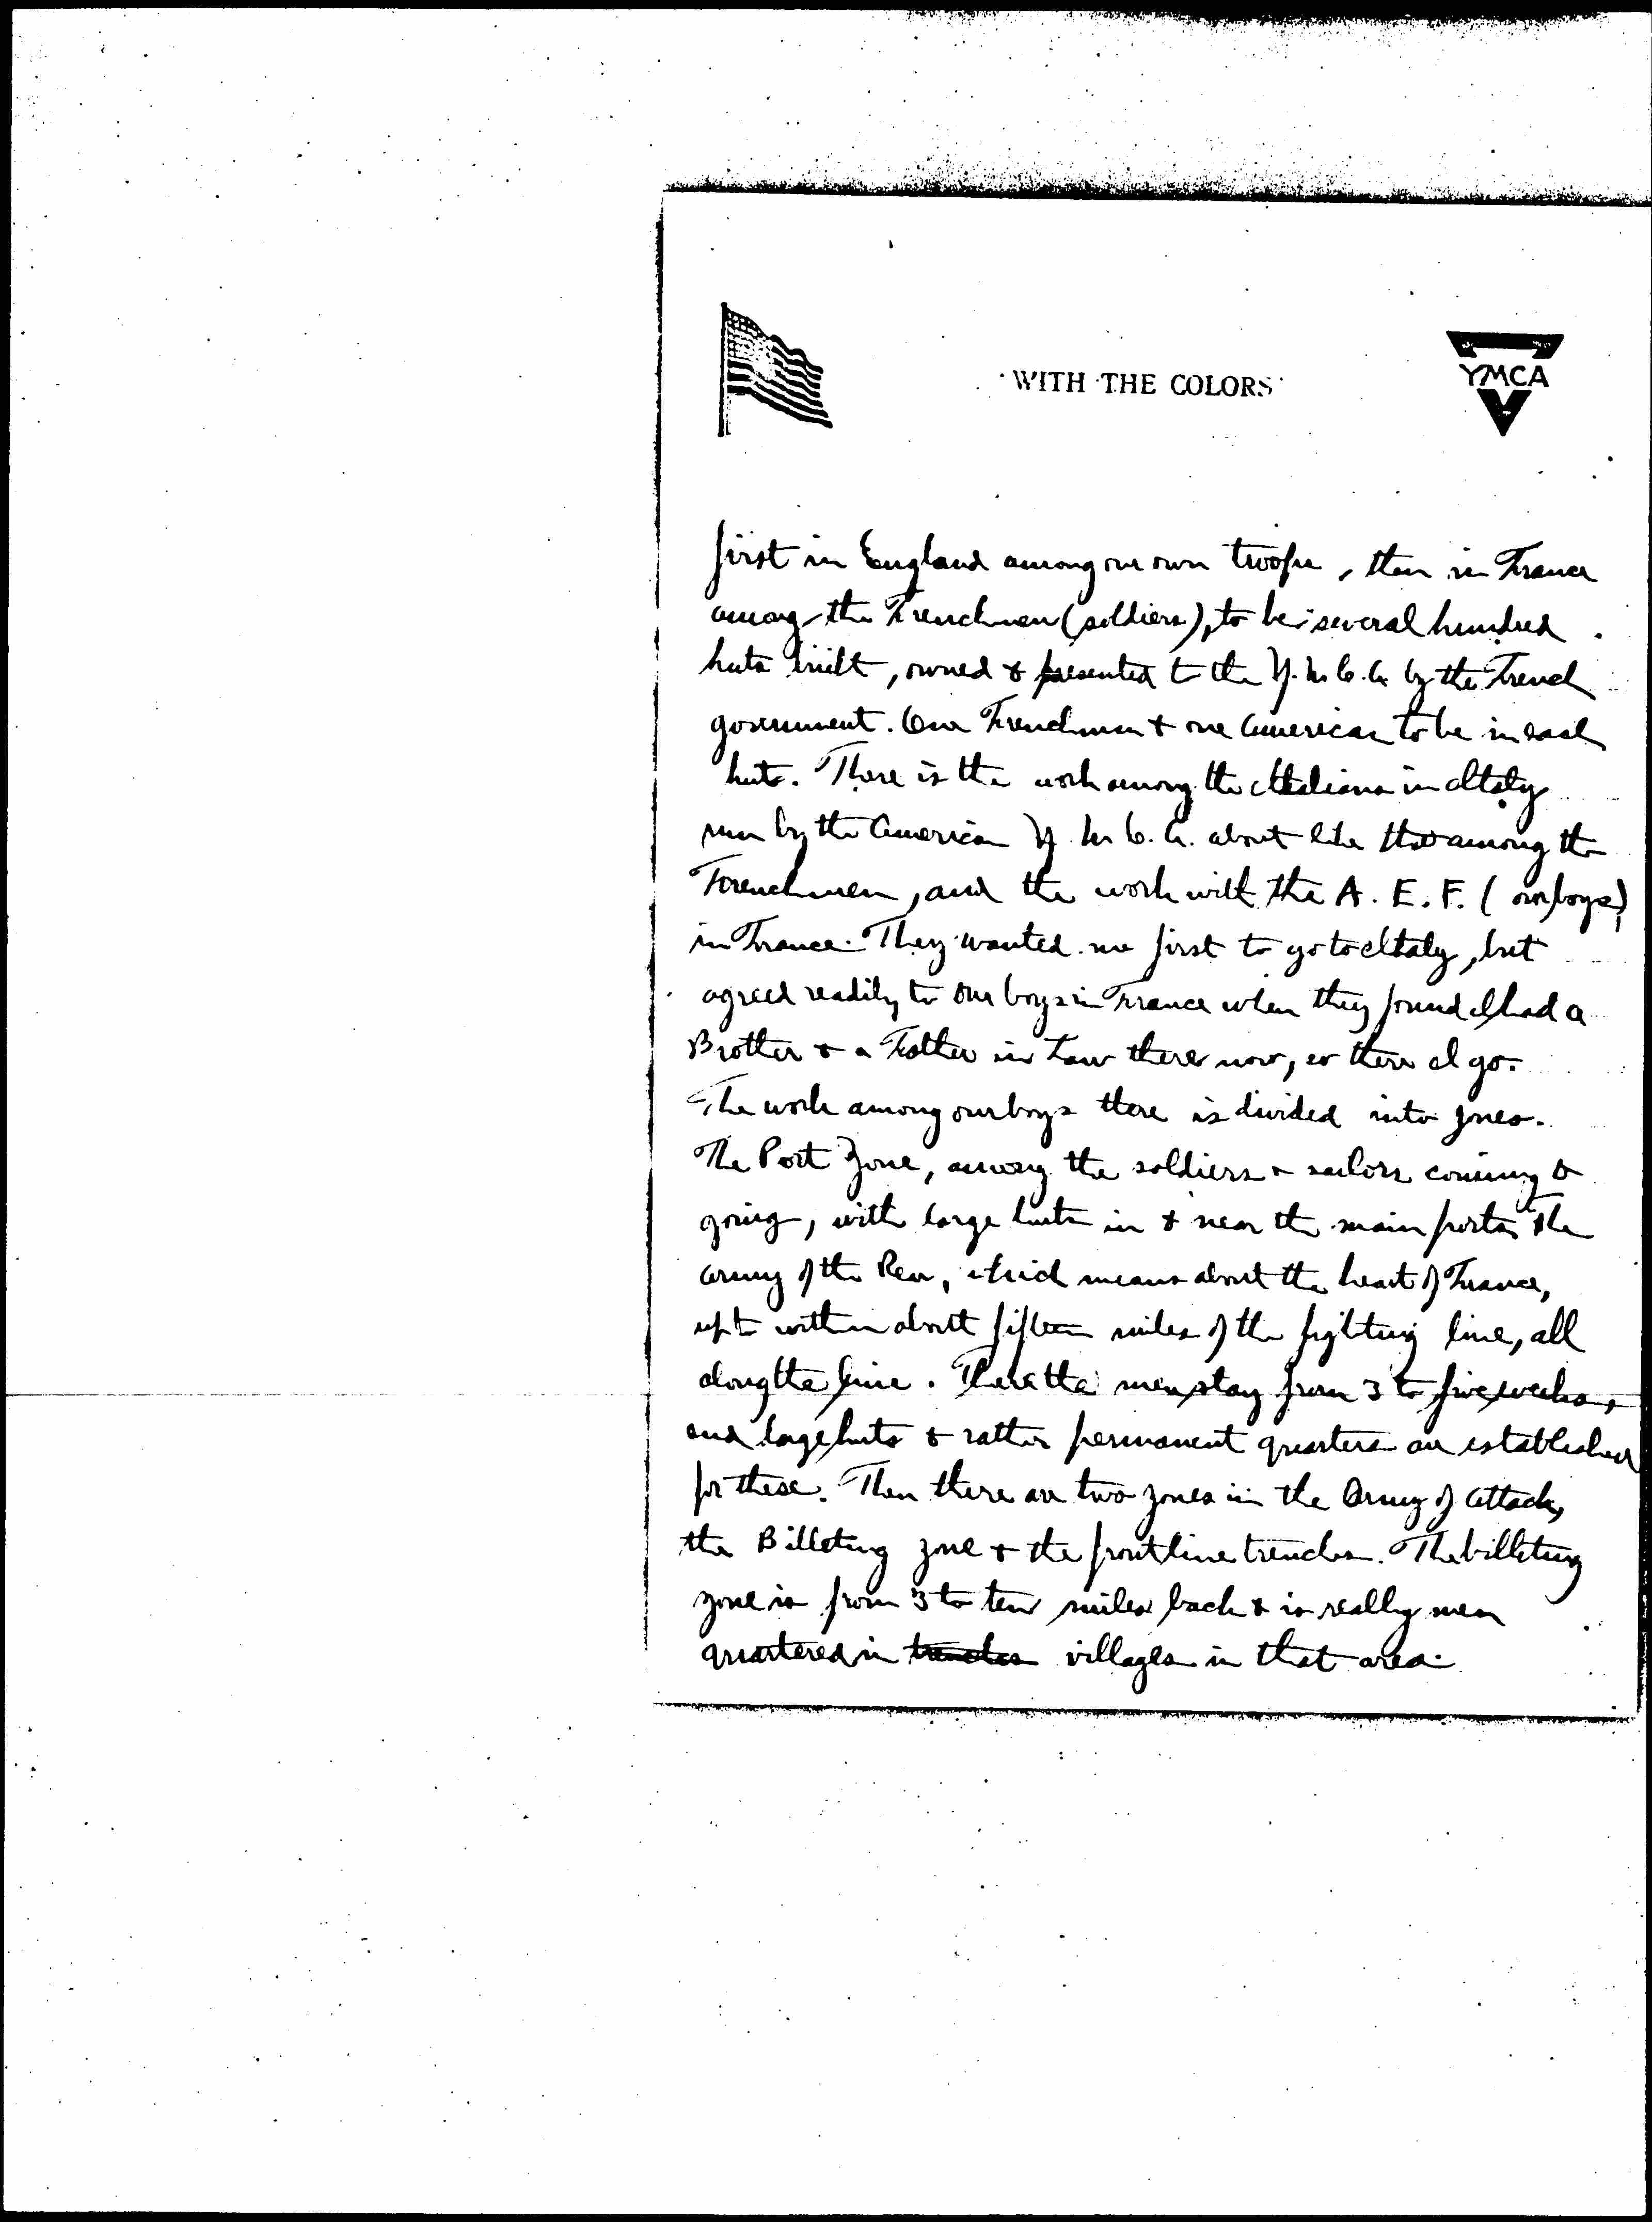 WITH THE COLORS
YMCA
first in England among our own troops, then in France
among the Frenchmen (soldiers), to be several hundred
huts built, owned & presented to the Y.M.C.A. by the French
government. One Frenchman & one American to be in each
hut. There is the work among the Italians in Italy
run by the American Y.M.C.A. about like that among the
Frenchmen, and the work with the A.E.F. (our boys)
in France. They wanted me first to go to Italy, but
agreed readily to our boys in France when they found I had a
Brother & a Father in Law there now, so there I go.
The work among our boys there is divided into zones.
The Port Zone, among the soldiers & sailors coming &
going, with large huts in & near the main ports, the
Army of the Rear, which means about the heart of France,
up to within about fifteen miles of the fighting line, all
along the line. There the men stay from 3 to five weeks,
and large huts & rather permanent quarters are established
for these. Then there are two zones in the Army of Attack,
the Billeting zone & the front line trenches. The billeting
zone is from 3 to ten miles back & is really men
quartered in trenches villages in that area.